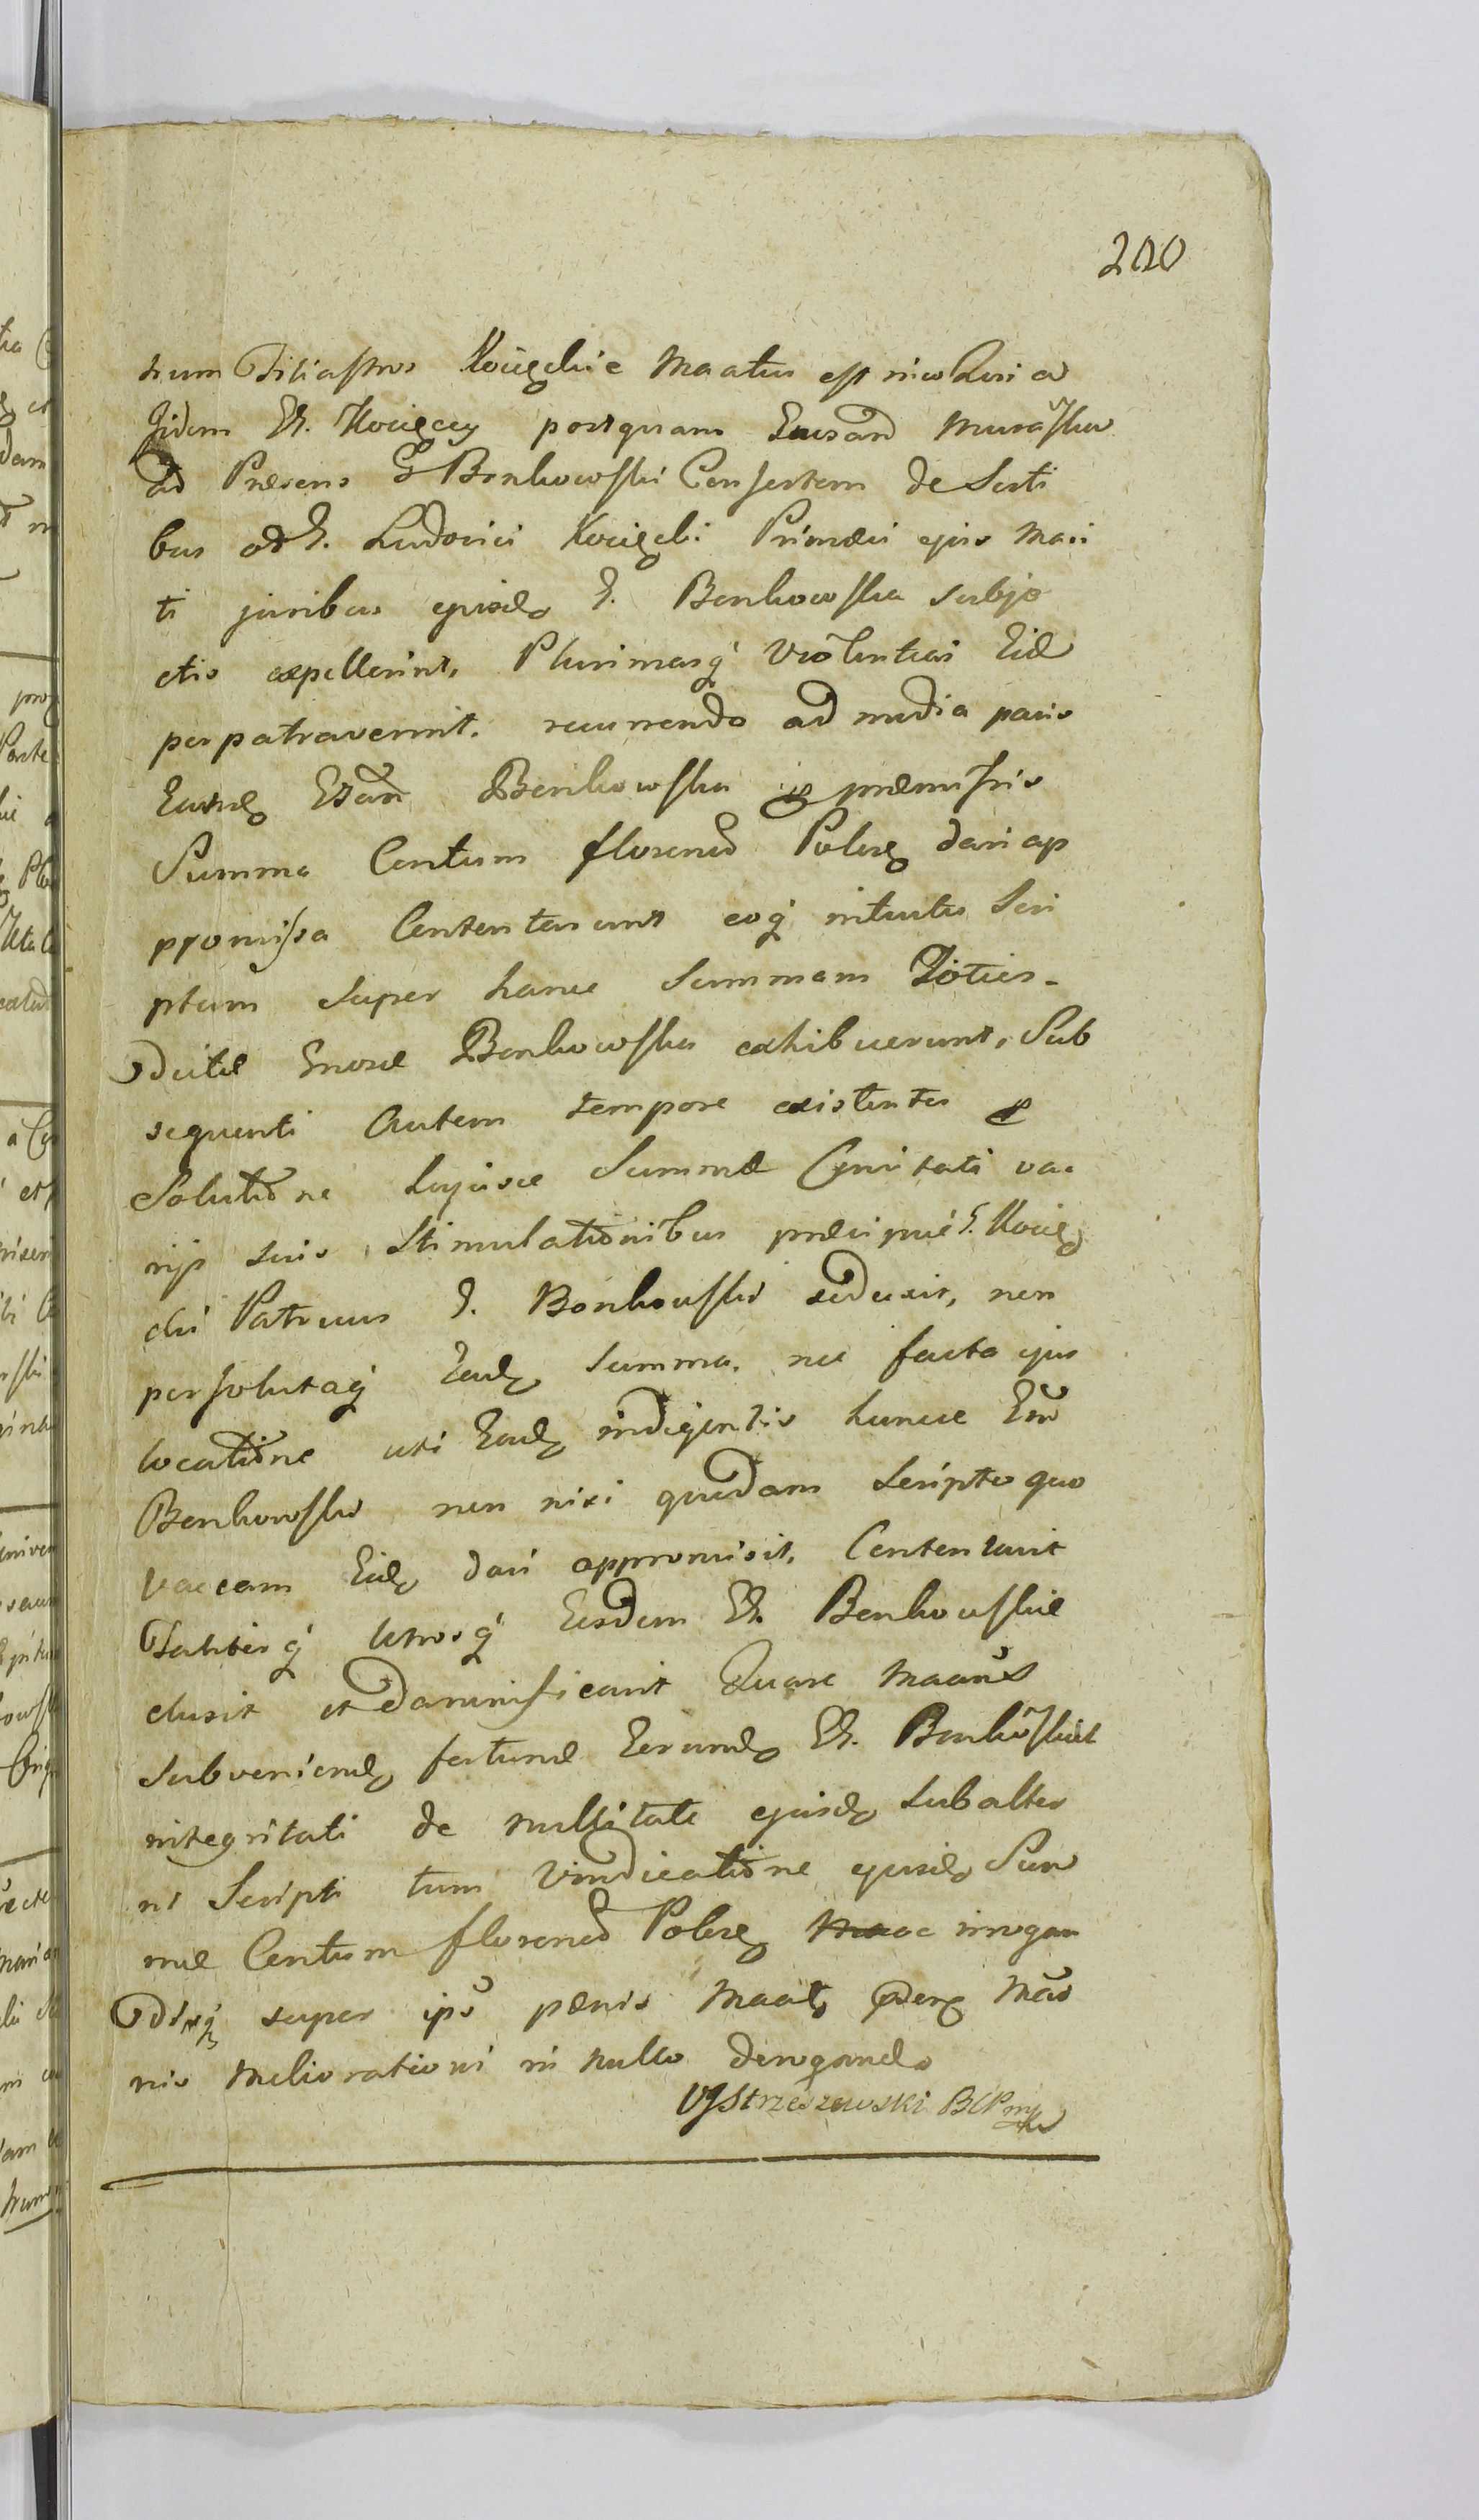 200
num Filiastros Kocięckie Maatus est nico
Iidem GG. Kocięccy postquam Eusand
ad Praesens G Bonkowski Consortem de Sorti
bus od G. Ludovici Kocięcki Primaevi ejus Mari
ti juribus ejusdę G. Bonkowska subje
ctis expellerint, Plurimasq̃ violentias Eid
perpatraverint. recurrendo ad media pacis
Bonkowska praemissis
Summa Centum florenor Polonę dari ap
promissa Contentarunt eoq̃ intuitu Scri
ptum super hance Summam Toties-
dictae Gnosae Bonkowska exhibuerunt, Sub
sequenti Autem tempore existente
Solutione hujusce Summae Gnitati va
rijs suis Stimulationibus praecipue G. Kocięę
cki Patruus G. Bonkowski seduxit, non
persolutaq̃ Eadę Summa. nec facta ejus
locatione uti Eadę indigentis hunce
Bonkowski non nisi quodam Scripto quo
vaccam Eidę dari appromisit, Contentavit
Taliterq̃ utrosq̃ Eosdem GG. Bonkowskie
clusit et damnificavit Quare Maatus
subveniendę fortunae Eorundę GG. Bonkowskich
integritati de nullitate ejusdę subalter
ni Scripti tum Vindicatione ejusdę Sum
mae Centum florenor Polonę irrogan
disq̃ super ips paenis Maatę
nis Meliorationi in nullo derogando
VJStrzeszewski BCP mp